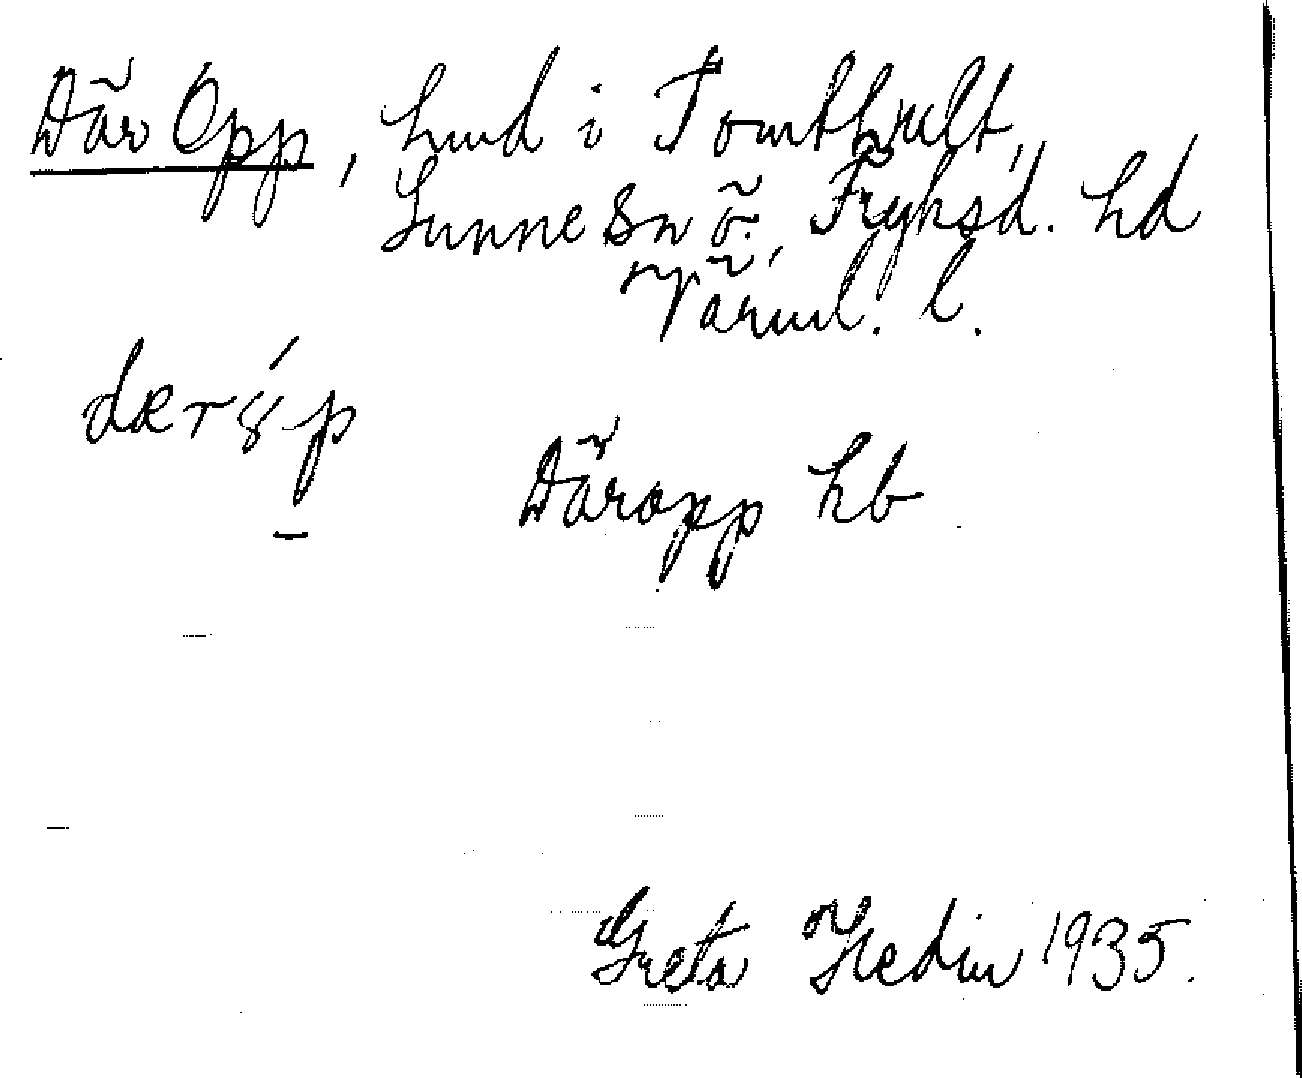 Där Opp, hmd i Tomthult,
Sunne Sn ö., Fryksd. hd
Värml. l.
Däropp hb
Greta Hedin 1935.